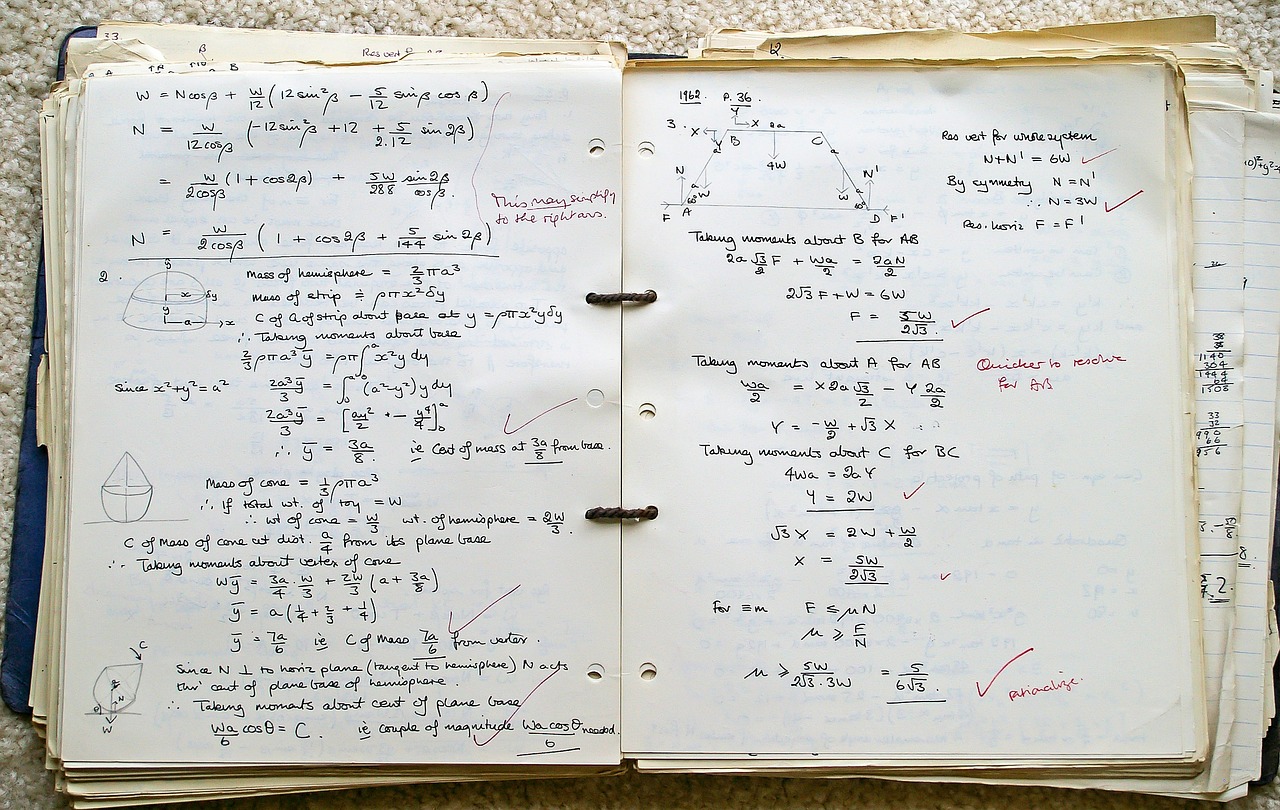 33.
β
Res vert
β A B
W = N cosβ + W/12 (12 sin²β − 5/12 sinβ cosβ)
N = W/12cosβ (−12 sin²β + 12 + 5/2.12 sin 2β)
= W/2cosβ (1 + cos2β) + 5W/288 sin2β/cosβ.
This may simplify
to the right ans.
N = W/2cosβ (1 + cos2β + 5/144 sin 2β)
2.
y
x δy
y
a x
Mass of hemisphere = 2/3 πa³
Mass of strip ≑ ρπx²δy
C of G of strip about base at y = ρπx²yδy
∴ Taking moments about base
2/3 ρπa³ȳ = ρπ∫₀ᵃ x²y dy
Since x²+y² = a² 2a³ȳ/3 = ∫₀ᵃ (a²−y²) y dy
2a³ȳ/3 = [ay²/2 − y⁴/4]₀ᵃ
∴ ȳ = 3a/8 ie Cent of mass at 3a/8 from base.
Mass of cone = 1/3 ρπa³
∴ If total wt. of toy = W
∴ wt of cone = W/3 wt. of hemisphere = 2W/3.
C of Mass of cone at dist. a/4 from its plane base
∴ Taking moments about vertex of cone
Wȳ = 3a/4 . W/3 + 2W/3 (a + 3a/8)
ȳ = a(1/4 + 2/3 + 1/4)
ȳ = 7a/6 ie C of Mass 7a/6 from vertex.
C
N
θ
W
Since N ⊥ to horiz plane (tangent to hemisphere) N acts
thro' cent of plane base of hemisphere.
∴ Taking moments about cent of plane base
Wa/6 cosθ = C. ie couple of magnitude Wa cosθ/6 needed.
1962. P. 36.
3. X Y X 2a
B C
Y a a
4W
N a a N'
W W
60° 60°
F A D F'
Res vert for whole system
N+N' = 6W
By symmetry N = N'
∴ N = 3W
Res. horiz F = F'
Taking moments about B for AB
2a √3/2 F + Wa/2 = 2aN/2
2√3 F + W = 6W
F = 5W/2√3.
Taking moments about A for AB
Quicker to resolve
for AB
Wa/2 = X 2a √3/2 − Y 2a/2
Y = −W/2 + √3 X
Taking moments about C for BC
4Wa = 2aY
Y = 2W
√3 X = 2W + W/2
X = 5W/2√3
For ≡m F ≤ μN
μ ≥ F/N
μ ≥ 5W/2√3.3W = 5/6√3.
rationalize.
38
38
1140
304
1444
64
1508
33
32
990
66
956